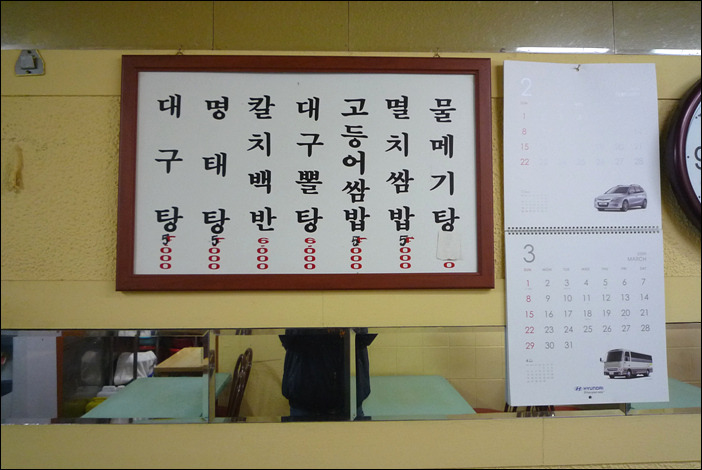 대구탕 5000
명태탕 5000
칼치백반 6000
대구뽈탕 6000
고등어쌈밥 5000
멸치쌈밥 5000
물메기탕 0
2
1
8
15
22
3
MARCH
1 2 3 4 5 6 7
8 9 10 11 12 13 14
15 16 17 18 19 20 21
22 23 24 25 26 27 28
29 30 31
4
HYUNDAI
9